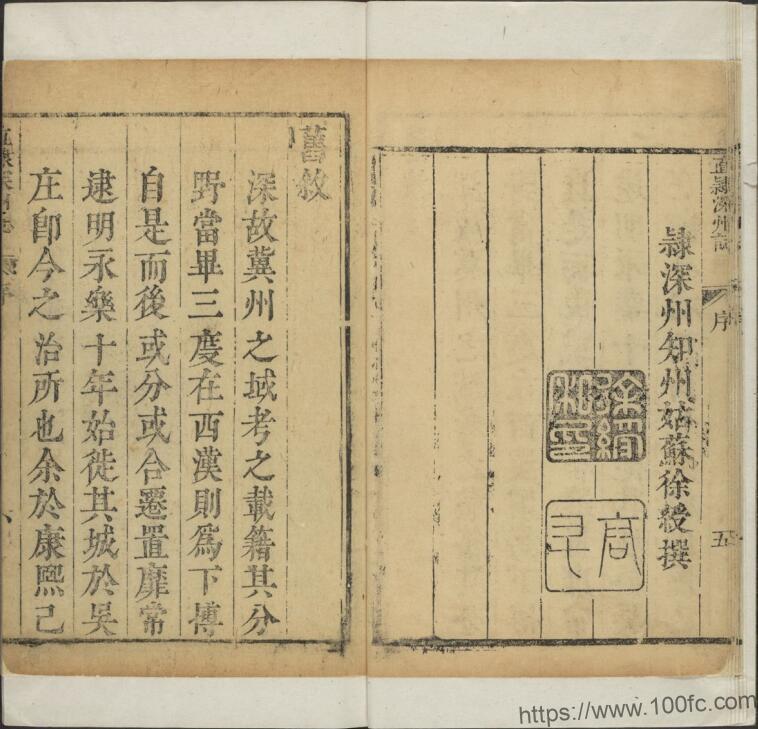 直隸深州
序
五
隸深州知州姑蘇徐綬撰
舊敘
深故冀州之域考之載籍其分
野當畢三度在西漢則爲下博
自是而後或分或合遷置靡常
逮明永樂十年始徙其城於吳
庄卽今之治所也余於康熙己
https://www.100fc.com